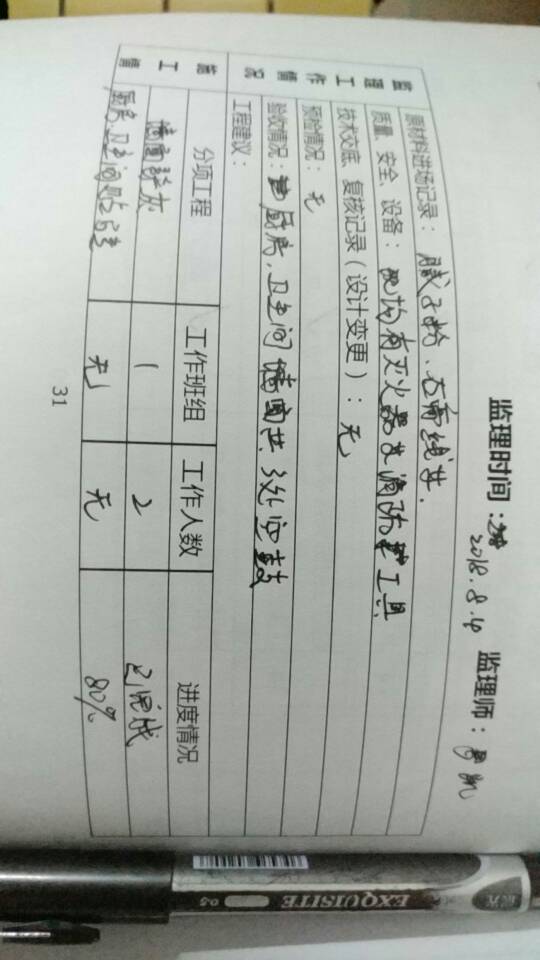 监理时间：2018.8.4 监理师：
监理工作情况
原材料进场记录：腻子粉、石膏线共.
质量、安全、设备：现均有灭火器及消防工具
技术交底、复核记录（设计变更）：无
预检情况：无
验收情况：厨房、卫生间墙面共3处空鼓
工程建议：
施工情
分项工程 工作班组 工作人数 进度情况
墙面 1 2 已完成
厨房卫生间贴砖 无 无 80%
31
EXQUISITE 0.5